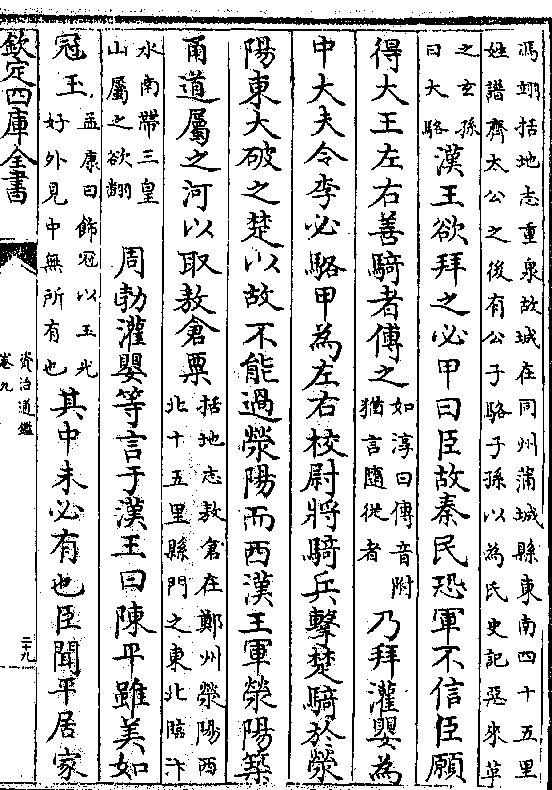 馮翊括地志重泉故城在同州蒲城縣東南四十五里
姓譜齊太公之後有公子駱子孫以為氏史記惡來革
之玄孫
曰大駱
漢王欲拜之必甲曰臣故秦民恐軍不信臣願
得大王左右善騎者傅之
如淳曰傅音附
猶言隨從者
乃拜灌嬰為
中大夫令李必駱甲為左右校尉將騎兵擊楚騎於滎
陽東大破之楚以故不能過滎陽而西漢王軍滎陽築
甬道屬之河以取敖倉粟
括地志敖倉在鄭州滎陽西
北十五里縣門之東北臨汴
水南帶三皇
山屬之欲翻
周勃灌嬰等言于漢王曰陳平雖美如
冠玉
孟康曰飾冠以玉光
好外見中無所有也
其中未必有也臣聞平居家
欽定四庫全書
資治通鑑
卷九
二十九